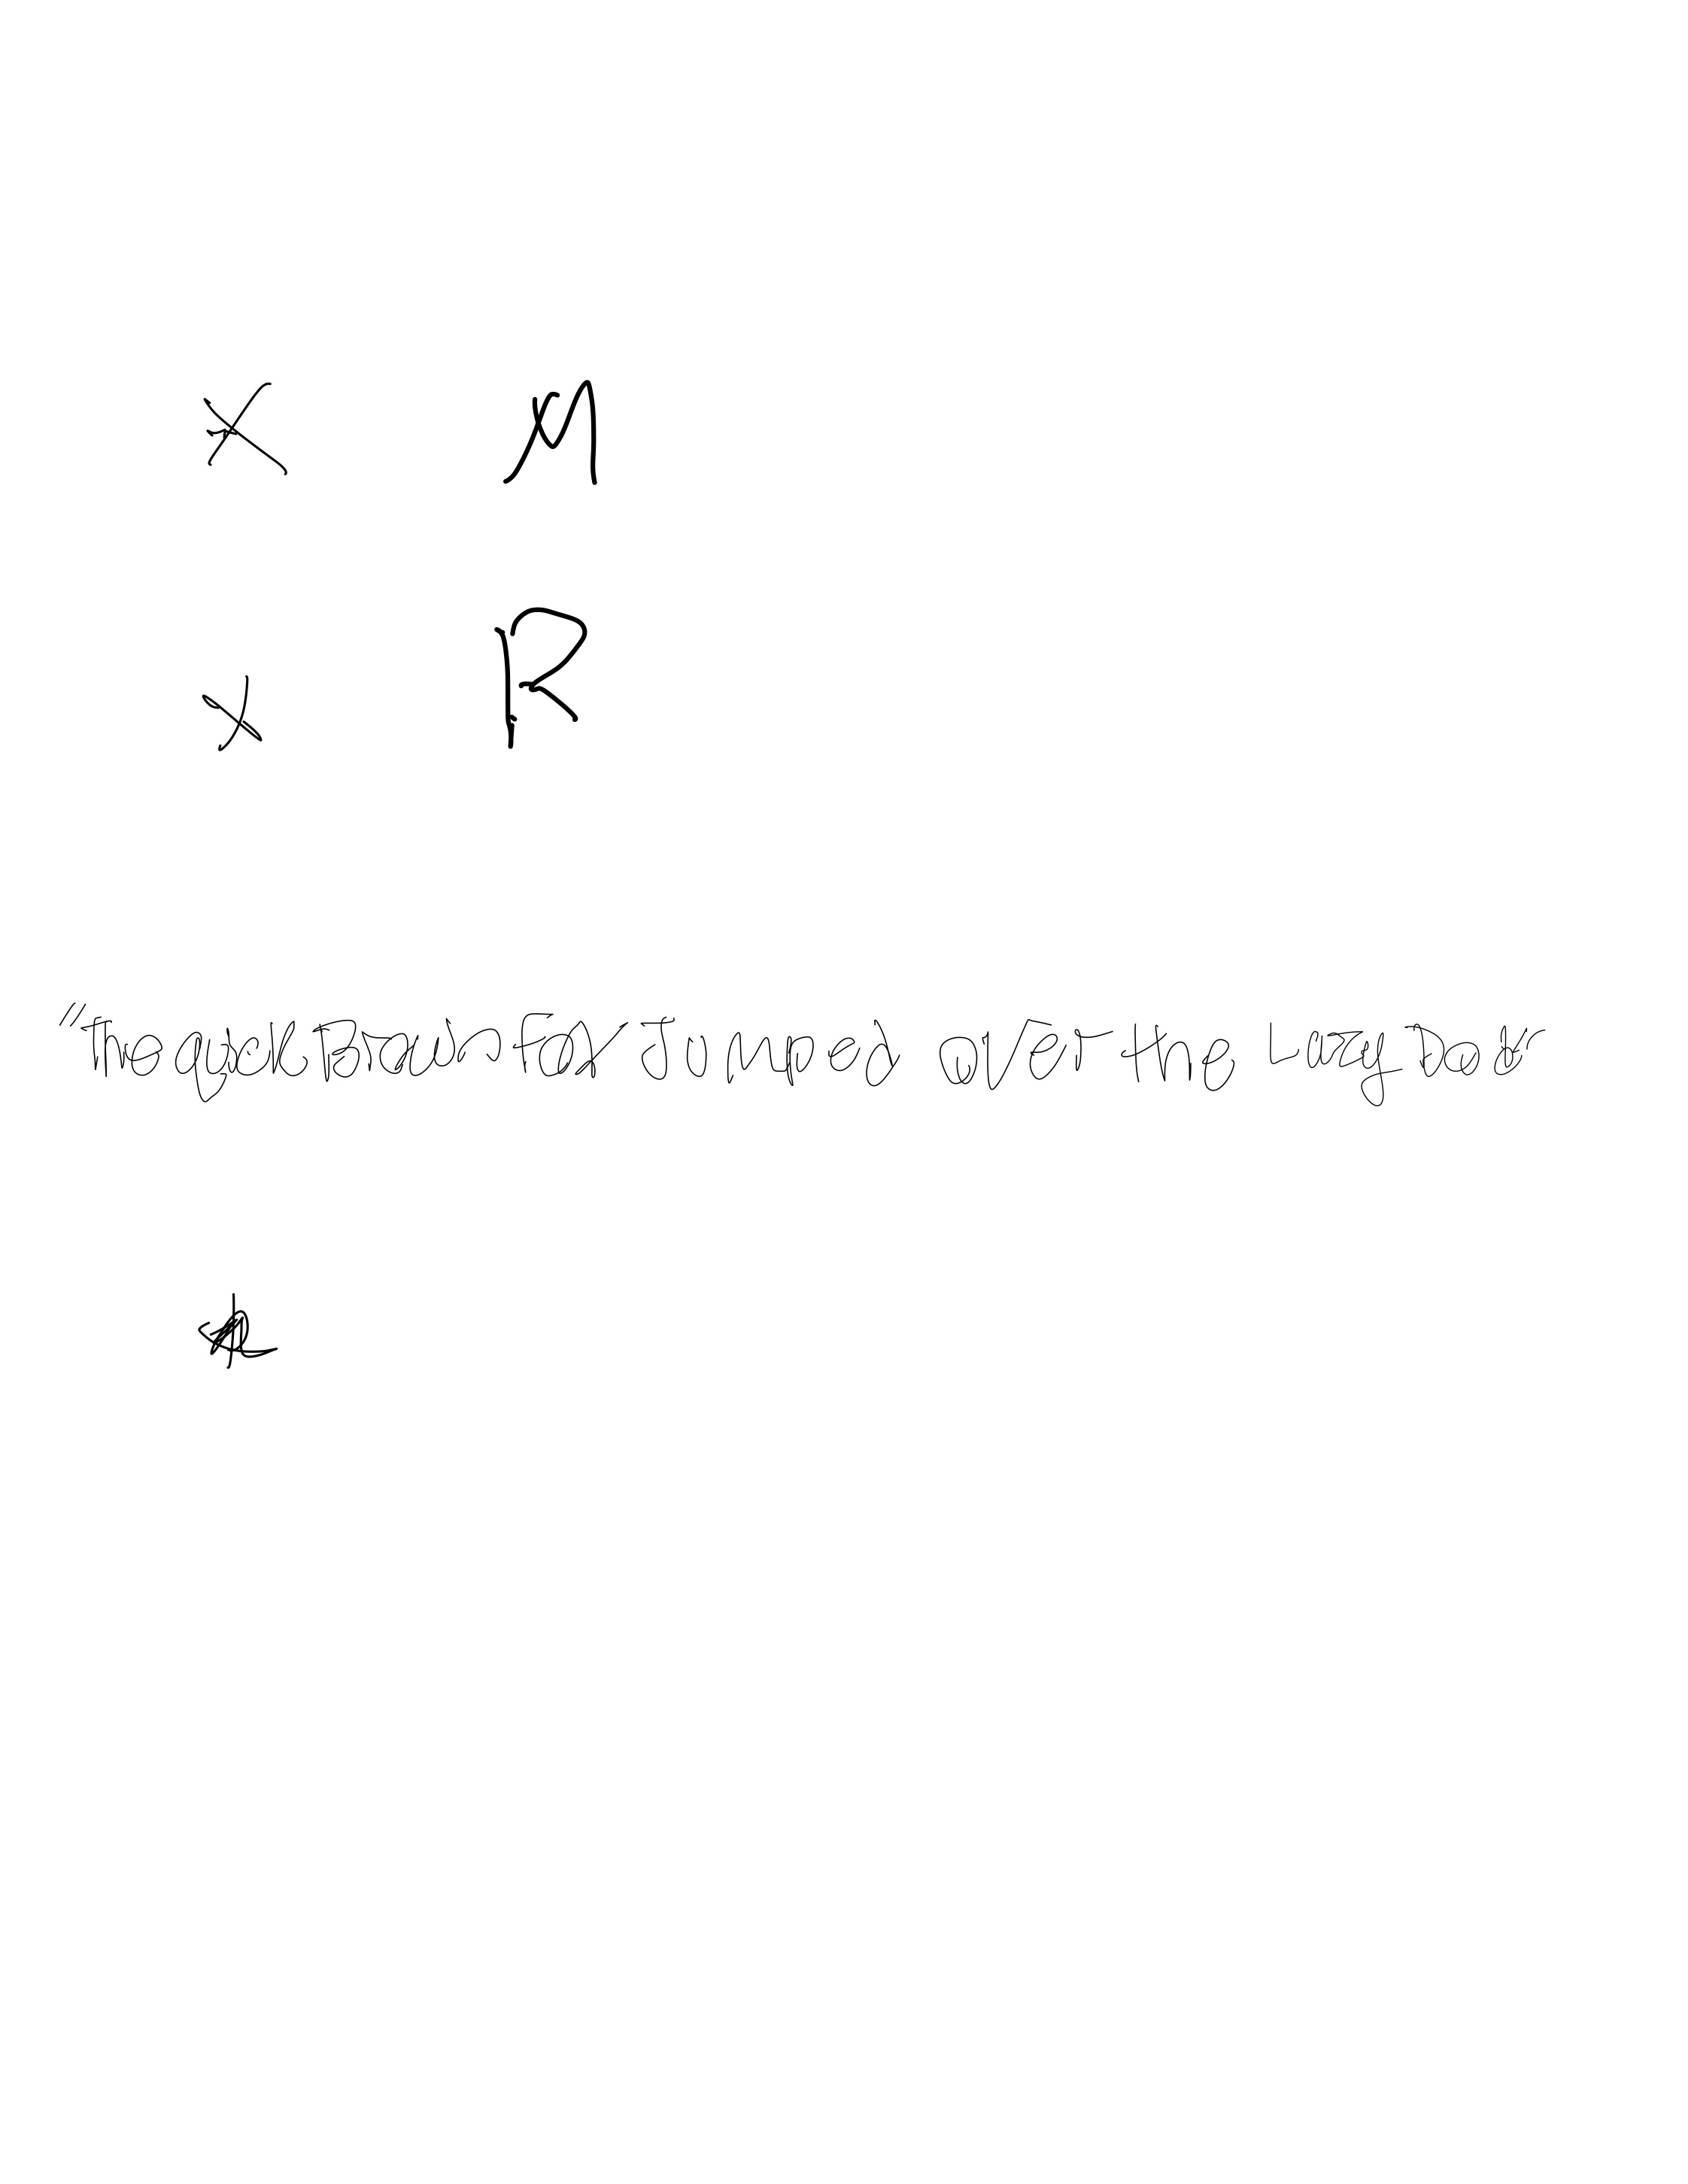 X M
X R
"The quick Brown Fox Jumped over the Lazy Dog